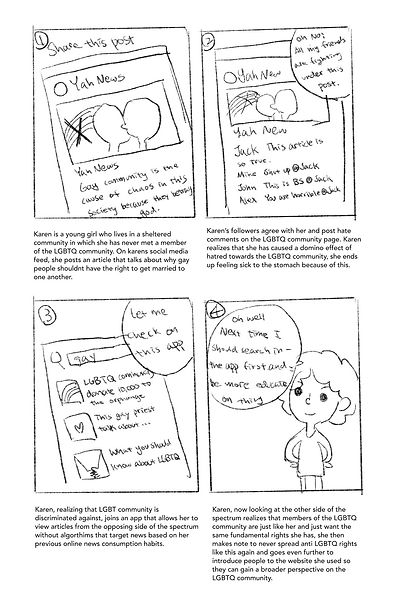 1
Share this post
Yah News
Yah News
Gay community is the
cause of chaos in this
society because they betray
god.
2
Yah News
oh No!
All my friends
are fighting
under this
post.
Yah New
Jack This article is
so true.
Mike Shut up @Jack
John This is BS @Jack
Alex You are horrible @Jack
Karen is a young girl who lives in a sheltered
community in which she has never met a member
of the LGBTQ community. On karens social media
feed, she posts an article that talks about why gay
people shouldnt have the right to get married to
one another.
Karen's followers agree with her and post hate
comments on the LGBTQ community page. Karen
realizes that she has caused a domino effect of
hatred towards the LGBTQ community, she ends
up feeling sick to the stomach because of this.
3
let me
check on
this app
gay
LGBTQ community
donate 10,000 to
the orphanage
This gay priest
talk about ...
What you should
know about LGBTQ
4
oh well
Next time I
should search in
the app first and
be more educate
on thing
Karen, realizing that LGBT community is
discriminated against, joins an app that allows her to
view articles from the opposing side of the spectrum
without algorthims that target news based on her
previous online news consumption habits.
Karen, now looking at the other side of the
spectrum realizes that members of the LGBTQ
community are just like her and just want the
same fundamental rights she has, she then
makes note to never spread anti LGBTQ rights
like this again and goes even further to
introduce people to the website she used so
they can gain a broader perspective on the
LGBTQ community.